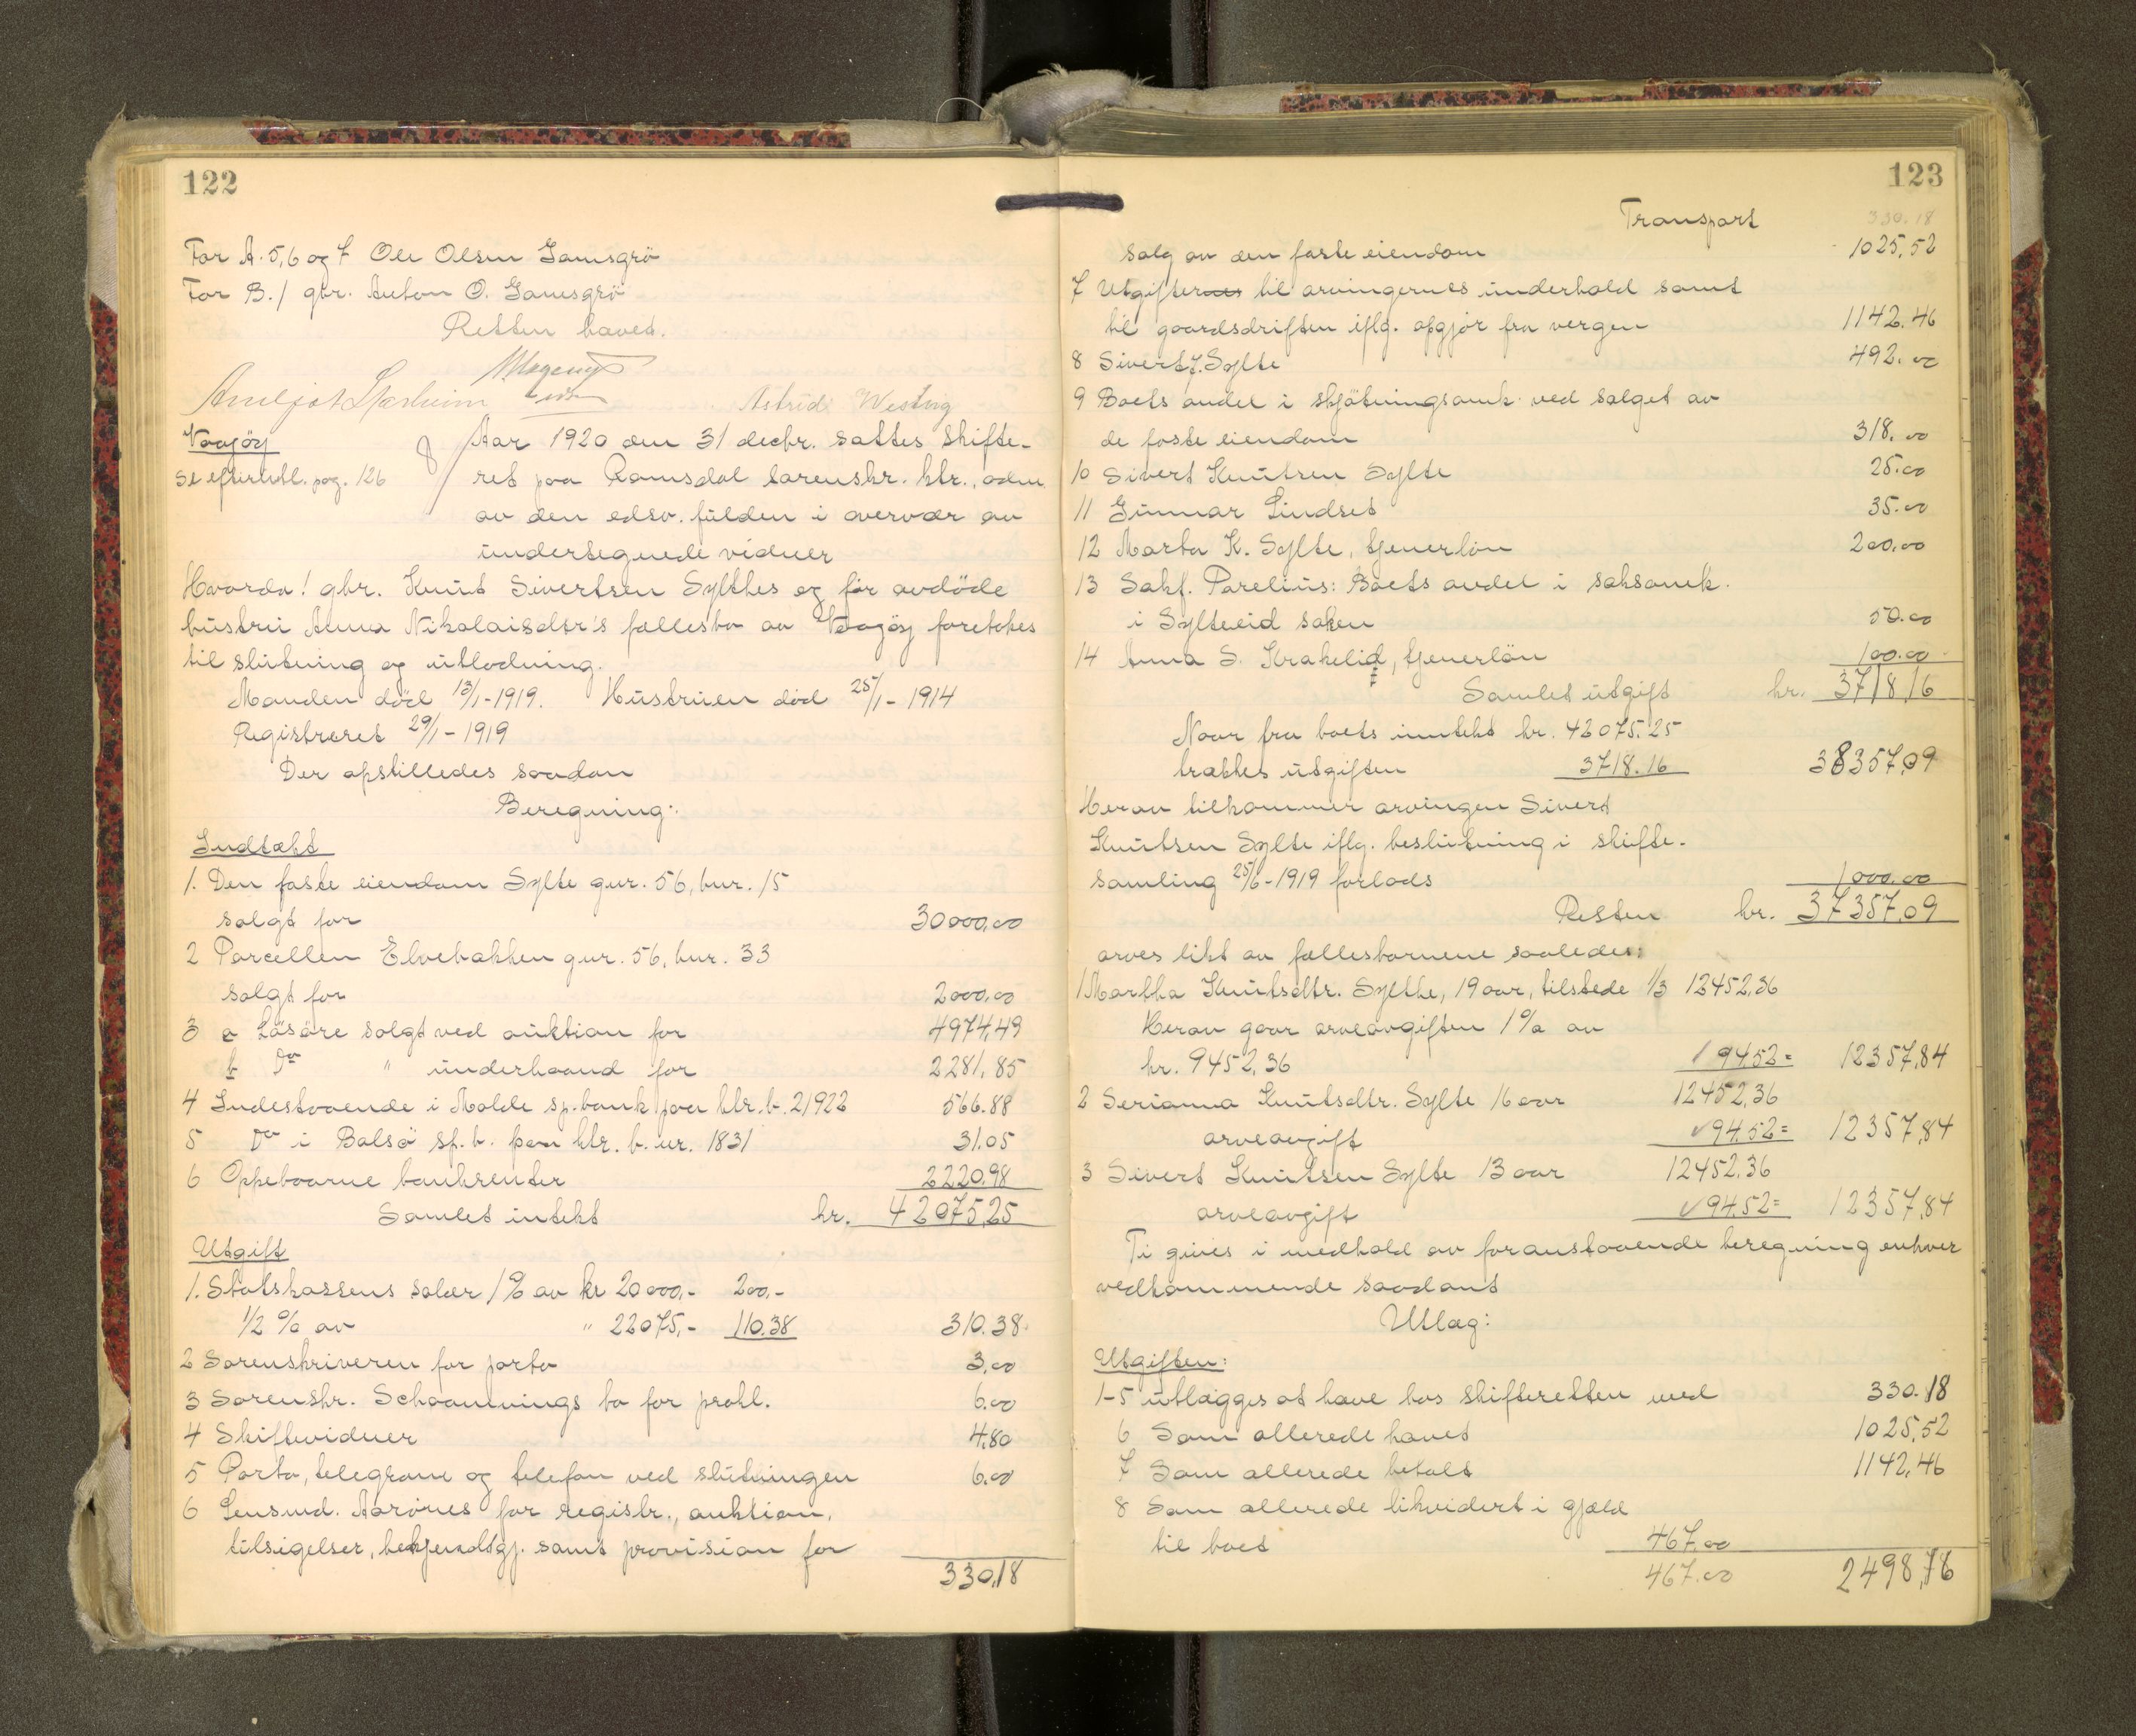 122
For A. 5,6 og 7 Ole Olsen Gamsgrö
For B. 1 gbr. Anton O. Gamsgrö
Retten hævet.
Astrid Westvig
Vaagöy
Se efterutl. pag. 126
8/ Aar 1920 den 31 decbr. sattes skifte-
ret paa Romsdal sorenskr. ktr., adm.
av den edsv. fuldm i overvær av
undertegnede vidner
Hvorda! gbr. Knut Sivertsen Sylthes og før avdöde
hustru Anna Nikolaisdtr's fællesbo av Vaagöy foretokes
til slutning og utlodning.
Manden död 13/1-1919. Hustruen död 25/1-1914
Registreret 29/1-1919
Der opstilledes saadan
Beregning:
Indtækt
1. Den faste eiendom Sylte gnr. 56, bnr. 15
solgt for 30000,00
2 Parcellen Elvebakken gnr. 56, bnr. 33
solgt for 2000,00
3 a Lösöre solgt ved auktion for 4974,49
b Do " underhaand for 2281,85
4 Indestaaende i Molde sp.bank paa ktr. b. 21922 566.88
5 Do i Bolsö sp. b. paa ktr. b. nr. 1831 31.05
6 Oppebaarne bankrenter 2220.98
Samlet intekt kr. 42075,25
Utgift
1. Statskassens salær 1% av kr 20000,- 200,-
1/2 % av " 22075,- 110.38 310.38
2 Sorenskriveren for porto 3,00
3 Sorenskr. Schaannings bo for prokl. 6.00
4 Skiftevidner 4,80
5 Porto, telegram og telefon ved slutningen 6.00
6 Lensmd. Aarönes for registr., auktion,
tilsigelser, bekjendtgj. samt provision for
330,18
123
Transport 330.18
salg av den faste eiendom 1025,52
7 Utgifternes til arvingernes underhold samt
til gaardsdriften iflg. opgjör fra vergen 1142.46
8 Sivert J. Sylte 492.00
9 Boets andel i skjötningsomk. ved salget av
de faste eiendom 318.00
10 Sivert Knutsen Sylte 25.00
11 Gunnar Lindset 35.00
12 Marta K. Sylte, tjenerlön 200,00
13 Sakf. Parelius: Boets andel i saksomk.
i Sylteeid saken 50.00
14 Anna S. Krakelid, tjenerlön 100.00
Samlet utgift kr. 3718,16
Naar fra boets inntekt kr. 42075.25
trækkes utgiften 3718.16 38357,09
Herav tilkommer arvingen Sivert
Knutsen Sylte iflg. beslutning i skifte-
samling 25/6-1919 forlods 1000,00
Resten kr. 37357,09
arves likt av fællesbarnene saaledes:
1 Martha Knutsdtr. Sylthe, 19 aar, tilstede 1/3 12452,36
Herav gaar arveavgiften 1% av
kr. 9452,36 94.52 = 12357,84
2 Serianna Knutsdtr. Sylte 16 aar 12452,36
arveavgift 94.52 = 12357,84
3 Sivert Knutsen Sylte 13 aar 12452,36
arveavgift 94,52 = 12357,84
Ti gives i medhold av foranstaaende beregning enhver
vedkommende saadant
Utlæg:
Utgiften:
1-5 utlægges at have hos skifteretten med 330.18
6 Som allerede hævet 1025,52
7 Som allerede betalt 1142,46
8 Som allerede likvidert i gjæld
til boet 467,00
467.00 2498,16